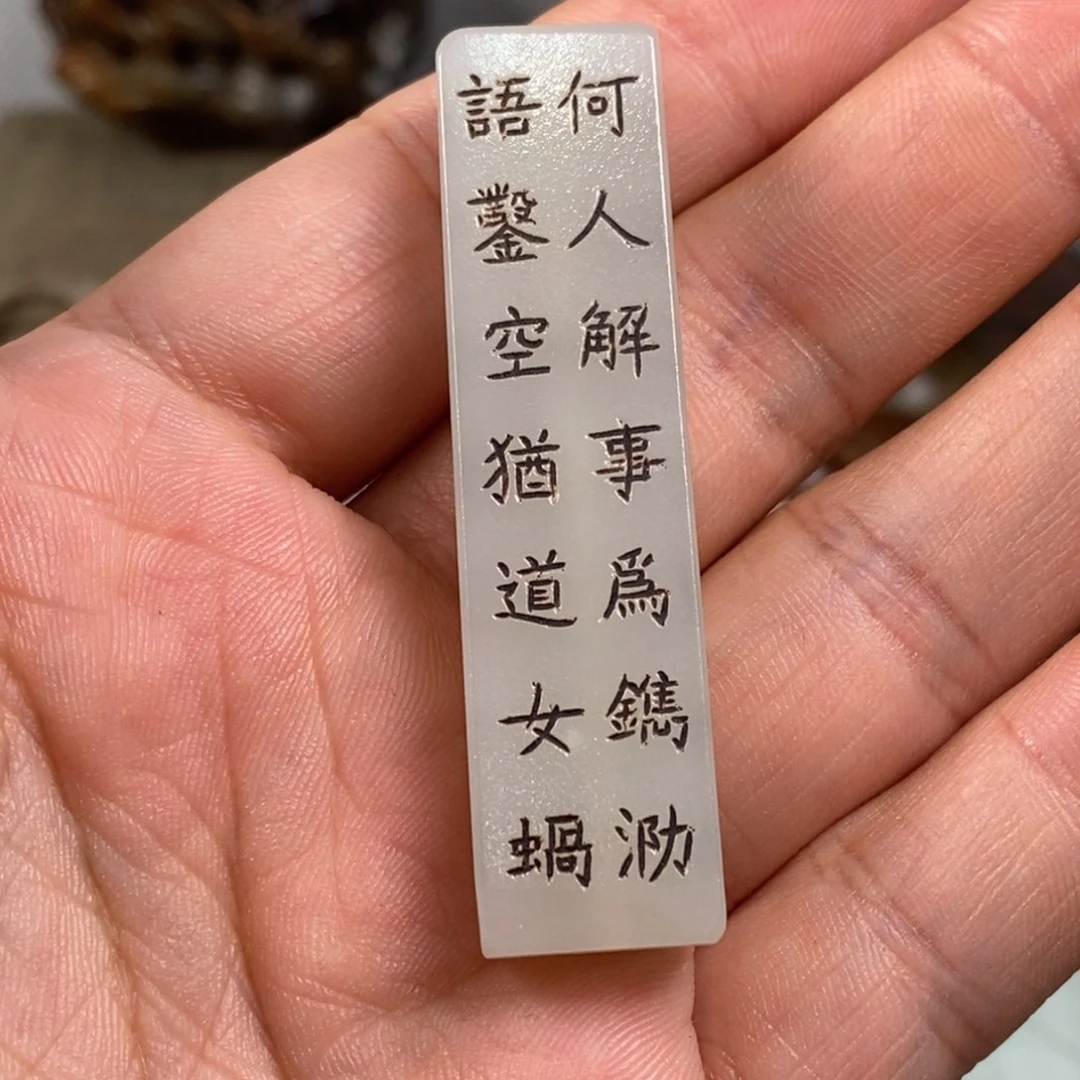 何人解事爲鐫泐
語鑿空猶道女蝸